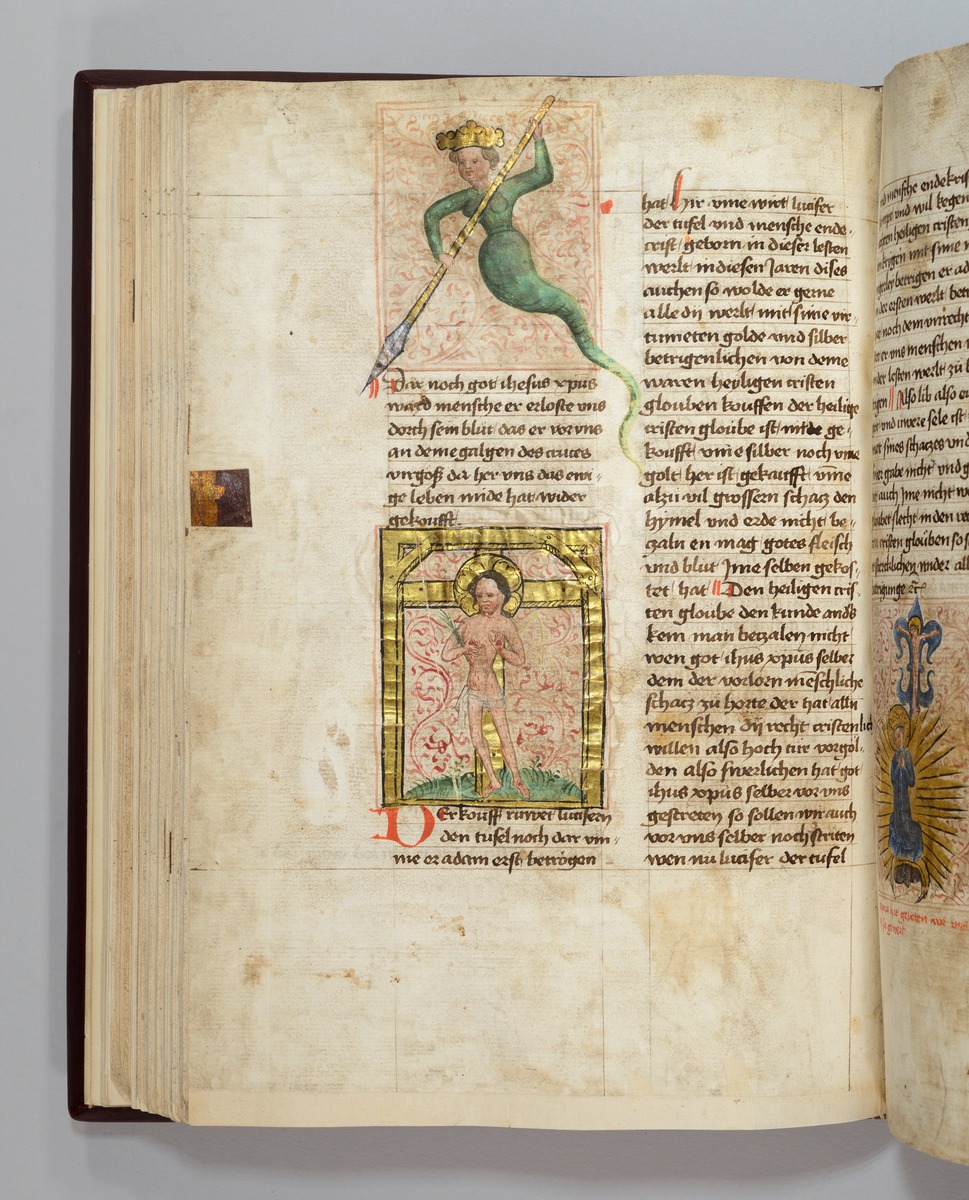 Dar noch got ihesus xpus
ward mensche er erloste vns
dorch sein blut das er vor vns
an deme galgen des cruces
vorgoß da her vns das ewi-
ge leben mide hat wider
gekoufft.
Der kouff ruwet lucifern
den tufel noch dar vm-
me er adam erst betrogen
hat hir vmē wirt lucifer
der tufel vnd mensche ende-
crist geborn in dieser lesten
werlt in diesen Jaren dises
auchen so wolde er gerne
alle dy werlt mit sime vir-
tumeten golde vnd silber
betrigenlichen von deme
waren heyligen cristen
glouben kouffen der heilige
cristen gloube ist nicht ge-
koufft vmē silber noch vme
golt her ist gekaufft vmē
alzu vil grossern schacz den
hymel vnd erde nicht be-
czaln en mag gotes fleisch
vnd blut Jme selben gekos-
tet hat Den heiligen cris-
ten gloube den kunde anders
kein man betzalen nicht
wen got ihus xpus selber
dem der vorlorn mēschliche
schacz zu horte der hat alln
menschen dy recht cristenlich
willen also hoch tur vorgol-
den also swerlichen hat got
ihus xpus selber vor vns
gestreten so sollen wir auch
vor vns selber noch striten
wen nu lucifer der tufel
mensche endekris
vnd wil kegen
heiligen cristen
betrigen er ad
der ersten werlt
noch dem vnrecht
er vns menschen
der lesten werlt zu
Also lib also
got vnd vwere sele ist
sines schaczes vnd
gabe nicht vnd
auch Jme nicht
slecht in den
cristen glouben so
wider all